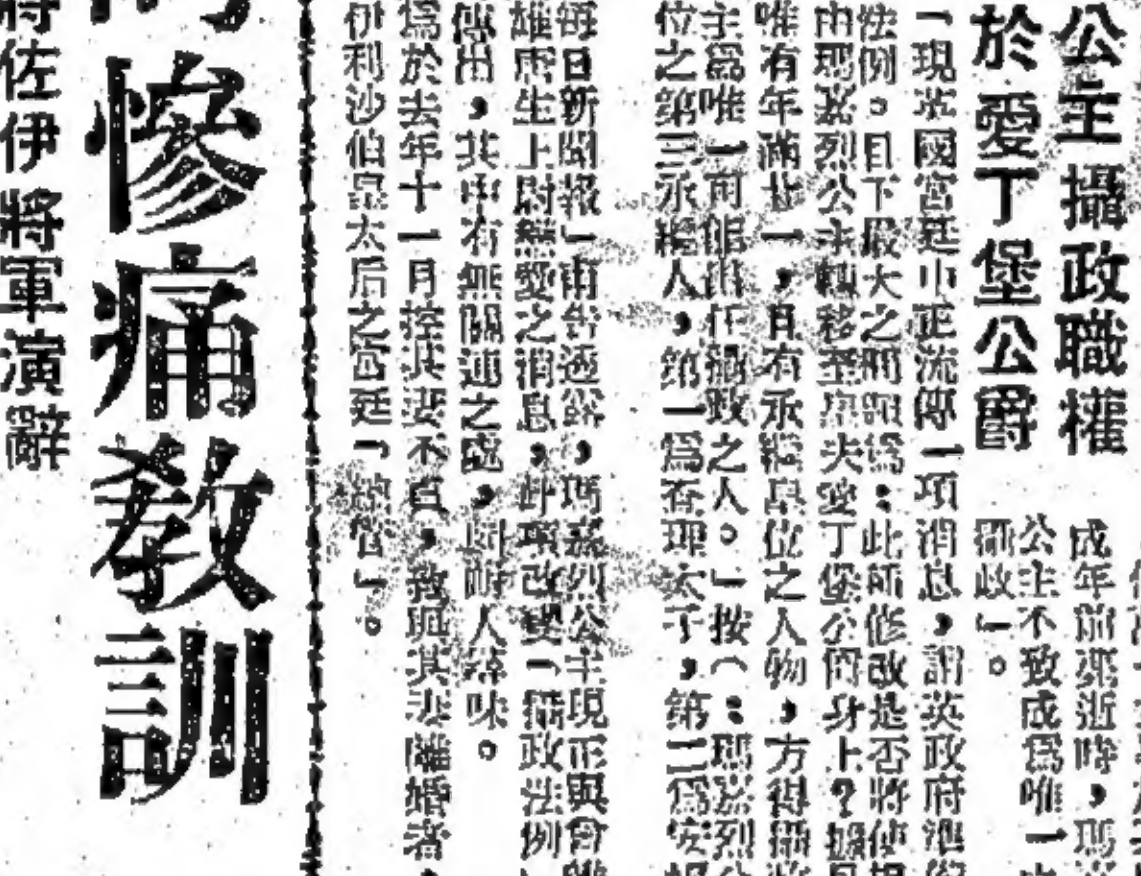 公主攝政職權
於愛丁堡公爵
成年前薨逝時，瑪
公主不致成爲唯一
攝政」。
「現英國宮廷中正流傳一項消息，謂英政府準
法例。目下最大之問題爲：此所修改是否將使
由瑪嘉烈公主轉移至其夫愛丁堡公爵身上？據
唯有年滿廿一，具有承繼皇位之人物，方得攝
主爲唯一可能出任攝政之人。」按（：瑪嘉烈公
位之第三承繼人，第一爲查理太子，第二爲安
每日新聞報」甫告透露，瑪嘉烈公主現正與曾
雄軍生上尉戀愛之消息，此項改變「攝政法例
傳出，其中有無關連之處，則耐人尋味。
爲於去年十一月控其妻不貞，致與其妻離婚者，
伊利沙伯皇太后之宮廷「總管」。
慘痛教訓
將佐伊將軍演辭